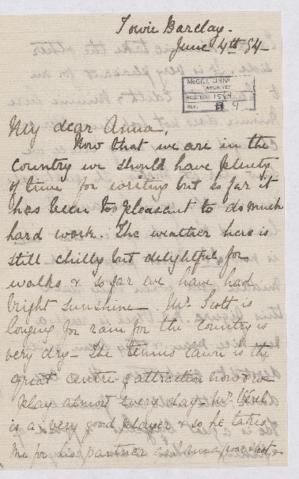 Towie Barclay.
June 4th 84
McGILL UNIV.
ARCHIVES
ACC. NO. 1584
REF. 9
My dear Anna,
Now that we are in the
country we should have plenty
of time for writing but so far it
has been to pleasant to do much
hard work. The weather here is
still chilly but delightful for
walks & so far we have had
bright sunshine — Mr. Scott is
longing for rain for the country is
very dry — The tennis lawn is the
great centre of attraction now & we
play almost every day. Mr.
is a very good player & so he takes
me for his partner as Anna